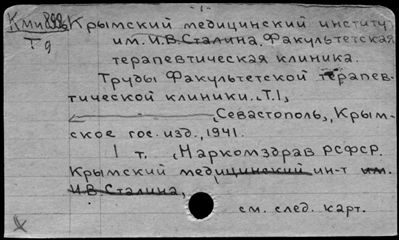 - 1 -
Крымский медицинский институт
им. И.В. Сталина. Факультетская
терапевтическая клиника.
Тg
Труды Факультетской терапев-
тической клиники. Т.1,
Севастополь, Крым-
ское гос. изд., 1941.
1 т. (Наркомздрав РСФСР.
Крымский медицинский ин-т им.
И.В. Сталина,
см. след. карт.